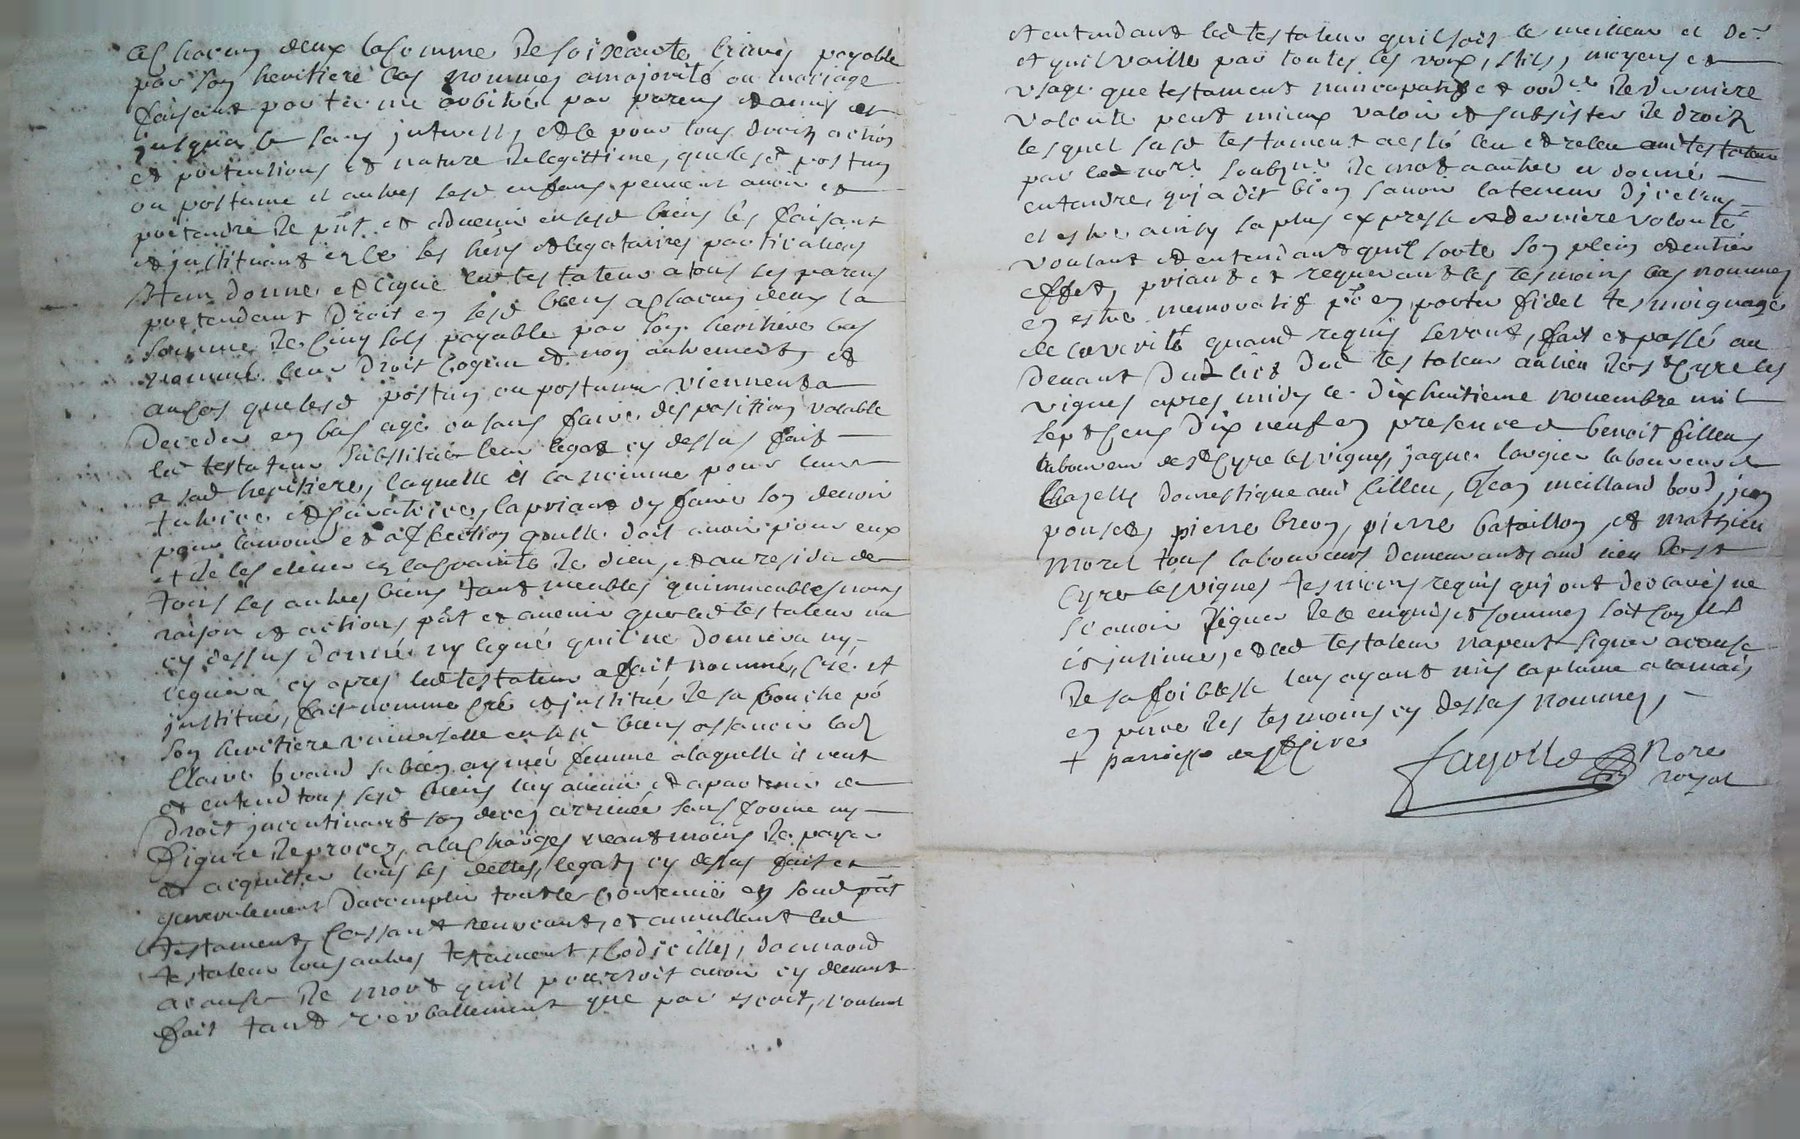 a chacun deux la somme de soixante livres payable
par son heritiere bas nommée a majorité ou mariage
faisant partie une arbitrée par parens et amis et
jusqua ce sans interests, et ce pour tous droits actions
et pretentions et nature de legittime, que lesd postum
ou postume et autres sesd enfans peuvent avoir et
pretendre de pnt et advenir en sesd biens les faisant
et instituant en ce ses hers et legataires particuliers
Item donne et legue led testateur a tous ses parens
pretendant droit en sesd biens a chacun deux la
somme de cinq sols payable par son heritiere bas
nommée leur droit cogeu et non autrement, et
au cas que lesd postum ou postume viennent a
deceder en bas age ou sans faire disposition valable
led testateur substitue leur legat cy dessus fait
a sad heritiere, laquelle il la nomme pour leur
tutrice et curatrice, la priant dy faire son devoir
pour lamour et affection quelle doit avoir pour eux
et de les elever en la crainte de dieu, et au residu de
tous ses autres biens tant meubles quimmeubles noms
raison et actions pnt et avenir que led testateur na
cy dessus donné ny legué quil ne donnera ny
leguera cy apres led testateur a fait nommé, créé et
institué, fait nomme cré et institue de sa bouche po
son heritiere universelle en sesd biens assavoir lad
Claire brand sa bien aymée femme a laquelle il veut
et entend tous sesd biens luy avenir et apartenir de
droit incontinant son deces arrivée sans forme ny
figure de proces, a la charges neantmoins de payer
et acquitter tous ses dettes, legats cy dessus fait et
generalement daccomplir tout le contenu en son pnt
testament, cassant revocant, et annullant led
testateur tous autres testament, Codicilles, donnaõn
a cause de mort quil pourroit avoir cy devant
fait tant verballement que par escrit, voulant
et entendant led testateur quil soit le meilleur et de
et quil vaille par toutes les voix, stils, moyens et
usage que testament nuncupatif et ord.re de derniere
volonté peut mieux valoir et subsister de droit
lesquel susd testament a esté leu et releu aud testateur
par led no.re soubz.ne de mot a autre et donne
entendre, qui a dit bien savoir la teneur dicelluy
et estre ainsy sa plus expresse et derniere volonté
voulant et entendant quil sorte son plein et entier
effet, priant et requerant les tesmoins bas nommes
en estre memoratif po en porter fidel tesmoignage
de la verité quand requis seront, fait et passé au
devant du lict dud testateur au lieu de st Cyre les
vignes apres midy le dixhuitieme novembre mil
sept cens dix neuf en presence de benoit fillieu
laboureur de st Cyre les vignes, jaques laugier laboureur de
Chazelle domestique aud fillieu, Jean meilland bord, jean
ponset, pierre breon, pierre bataillon, et mathieu
morel tous laboureurs demeurants aud lieu de st
Cyre les vignes tesmoins requis qui ont declarés ne
scavoir signer de ce enquis et sommes
et led testateur na peut signer a cause
de sa foiblesse luy ayant mis la plume a la main
en pnce des tesmoins cy dessus nommes,
+ parroisse de st Cire
Fayolle Nore
royal